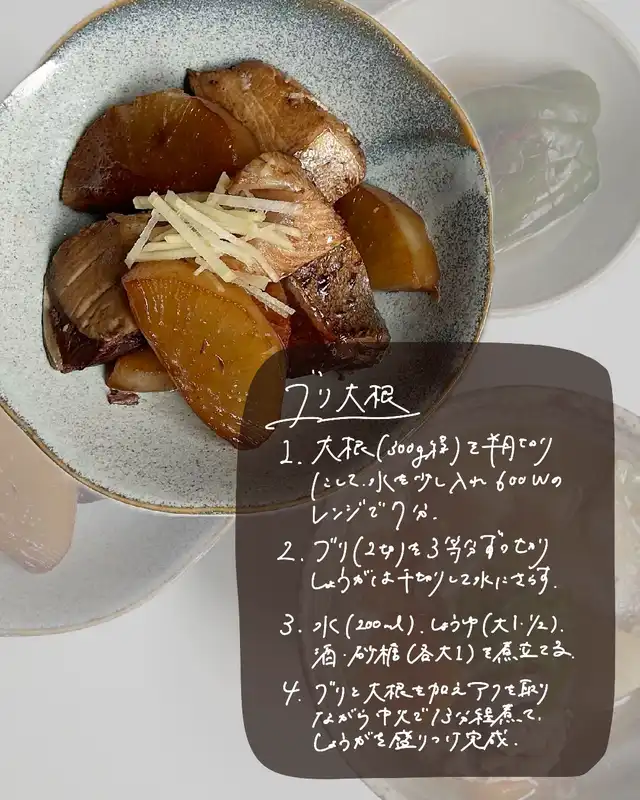 ブリ大根
1. 大根(300g程)を半月切り
にして、水を少し入れ600Wの
レンジで7分.
2. ブリ(2切)を3等分ずつ切り
しょうがは千切りして水にさらす.
3. 水(200ml)、しょうゆ(大1・1/2)、
酒・砂糖(各大1)を煮立てる.
4. ブリと大根を加えアクを取り
ながら中火で13分程煮て、
しょうがを盛りつけ完成.